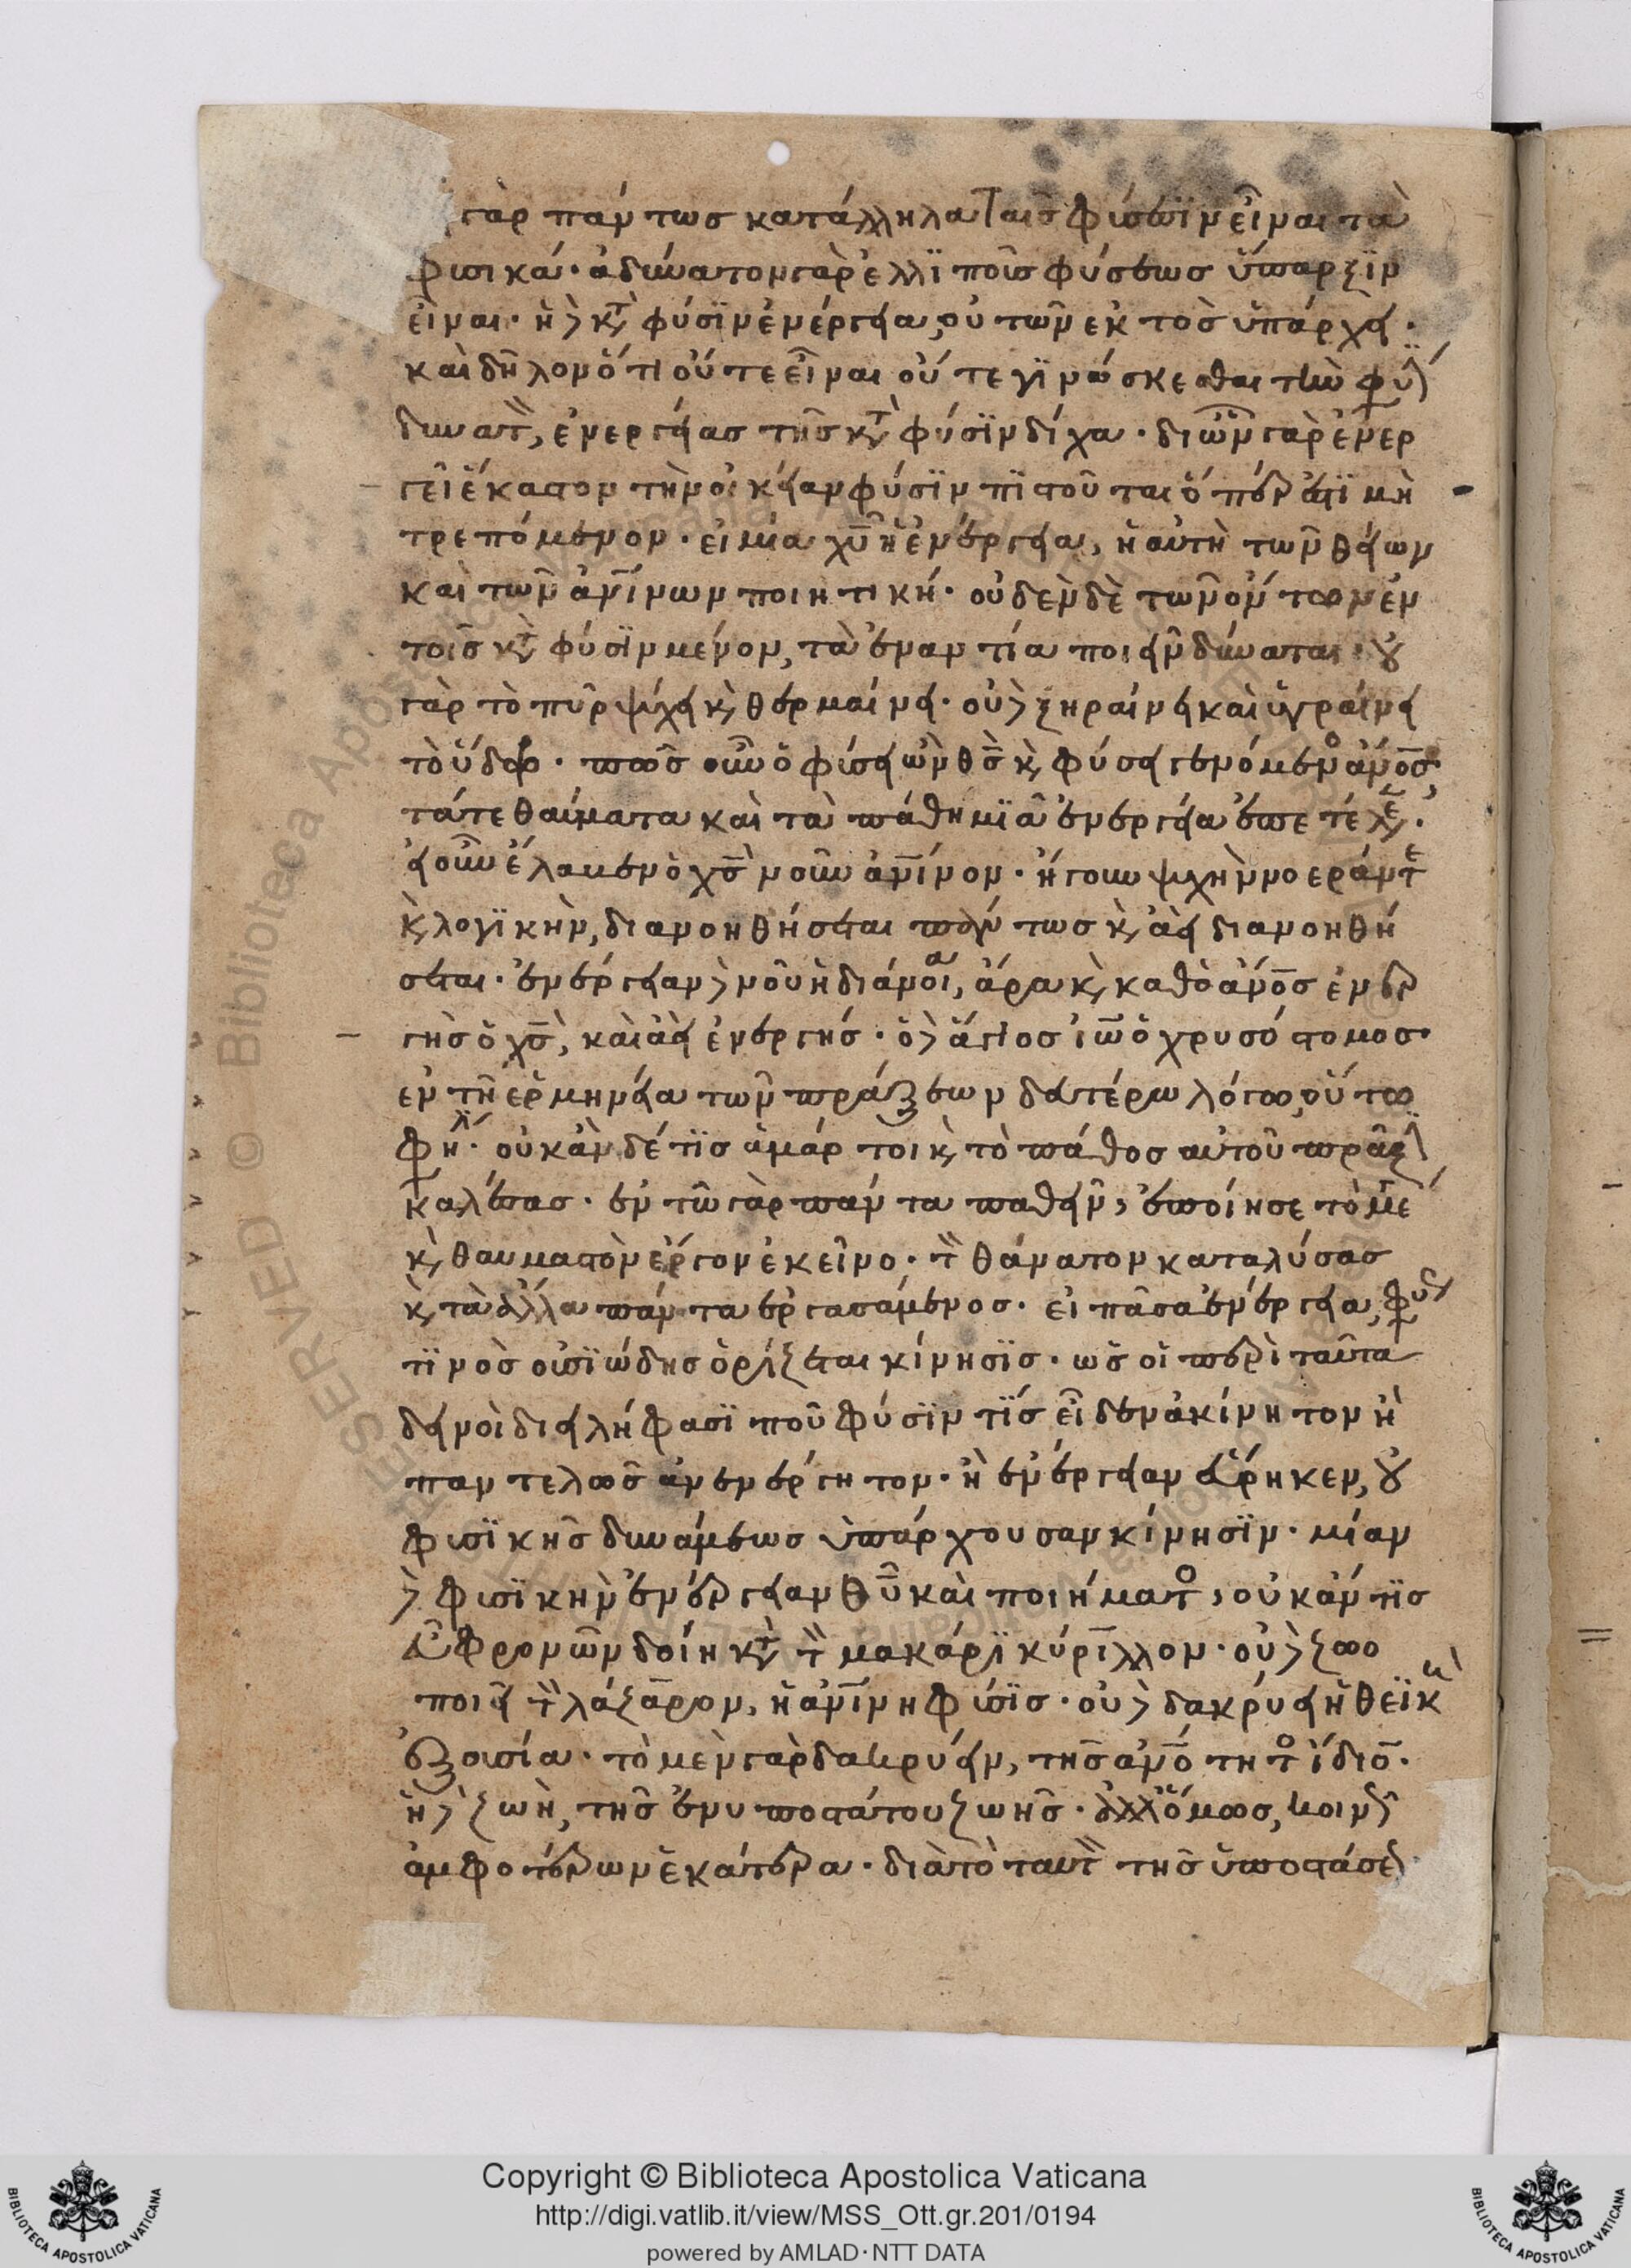 γὰρ πάντως κατάλληλα ταῖς φύσεσϊν εἶναι τὰ
φυσικά· ἀδύνατον γὰρ ἐλλϊποῦς φύσεως ὕπαρξϊν
εἶναι· ἡ δὲ κατὰ φύσϊν ἐνέργεια, οὐ τῶν ἐκτὸς ὑπάρχει·
καὶ δῆλον ὅτι οὔτε εἶναι οὔτε γϊνώσκεσθαι τὴν φύσιν
δυνατὸν, ἐνεργείας τῆς κατὰ φύσϊν δίχα· δι ὧν γὰρ ἐνερ
γεῖ ἕκαστον τὴν οἰκείαν φύσϊν πϊστοῦται ὅπερ ἐστϊ μὴ
τρεπόμενον· εἰ μία χυ ἡ ἐνέργεια, ἡ αὐτὴ τῶν θείων
καὶ τῶν ανίνων ποιητική· οὐδὲν δὲ τῶν ὄντων ἐν
τοῖς κατὰ φύσϊν μένον, τὰ ἐναντία ποιεῖν δύναται· οὐ
γὰρ τὸ πῦρ ψύχει καὶ θερμαίνει· οὐδὲ ξηραίνει καὶ ὑγραίνει
τὸ ὕδωρ· πῶς οὖν ὁ φύσει ὢν θς καὶ φύσει γενόμενος ανος
τά τε θαύματα καὶ τὰ πάθη μϊᾶ ἐνεργεία ἐπετέλεσεν·
εἰ οὖν ἔλαβεν ὁ χς νοῦν ανίνον· ἤγουν ψυχὴν νοεράν τε
καὶ λογϊκὴν, διανοηθήσεται πάντως καὶ ἀεὶ διανοηθή
σεται· ἐνέργεια δὲ νοῦ ἡ διάνοια, ἄρα καὶ καθὸ ανος ἐνερ
γὴς ὁ χς, καὶ ἀεὶ ἐνεργής· ὁ δὲ ἅγιος ἰω ὁ χρυσόστομος·
ἐν τῆ ἑρμηνεία τῶν πράξεων δευτέρω λόγω, οὕτω
φησίν· οὐκ ἂν δέ τϊς ἁμάρτοι καὶ τὸ πάθος αὐτοῦ πρᾶξιν
καλέσας· ἐν τῶ γὰρ πάντα παθεῖν, ἐποίησε τὸ μέγα
καὶ θαυμαστὸν ἔργον ἐκεῖνο· τὸν θάνατον καταλύσας
καὶ τὰ ἄλλα πάντα ἐργασάμενος· εἰ πᾶσα ἐνέργεια, φύσεως
τϊνὸς οὐσϊώδης ὁρίζεται κίνησϊς· ὡς οἱ περὶ ταῦτα
δεινοὶ διειλήφασϊ ποῦ φύσϊν τϊς εἶδεν ἀκίνητον ἢ
παντελῶς ἀνενέργητον· ἢ ἐνέργειαν εὕρηκεν, οὐ
φυσϊκῆς δυνάμεως ὑπάρχουσαν κίνησϊν· μίαν
δὲ φυσϊκὴν ἐνέργειαν θυ καὶ ποιήματος, οὐκ ἄν τϊς
εὖ φρονῶν δοίη κατὰ τὸν μακάριον κύρϊλλον· οὐδὲ ζωο
ποιεῖ τὸν λάζαρον, ἡ ανίνη φύσϊς· οὐδὲ δακρύει ἡ θεϊκὴ
ἐξουσία· τὸ μὲν γὰρ δακρύειν, τῆς ανότητος ἴδιον·
ἡ δὲ ζωὴ, τῆς ἐνυποστάτου ζωῆς· ἀλλ' ὅμως, κοινὰ
ἀμφοτέρων ἑκάτερα· διὰ τὸ ταυτὸν τῆς ὑποστάσεως
Copyright © Biblioteca Apostolica Vaticana
http://digi.vatlib.it/view/MSS_Ott.gr.201/0194
powered by AMLAD·NTT DATA